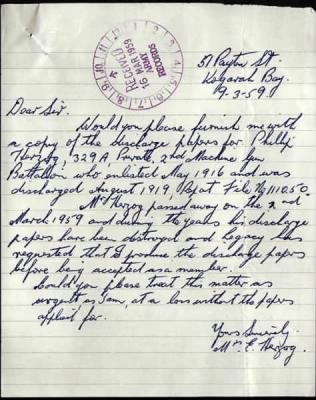 RECEIVED
16 MAR 1959
ARMY
RECORDS
51 Payton St.
Kogarah Bay.
9-3-59.
Dear Sir.
Would you please furnish me with
a copy of the discharge papers for Phillip
Herzog, 329A, Private, 2nd Machine Gun
Battalion who enlisted May 1916 and was
discharged August 1919. File No 111050.
Mr Herzog passed away on the 2nd
March 1959 and during the years his discharge
papers have been destroyed and Legacy has
requested that I produce the discharge papers
before being accepted as a member.
Could you please treat this matter as
urgent as I am at a loss without the papers
applied for.
Yours Sincerely.
Mrs E. Herzog.